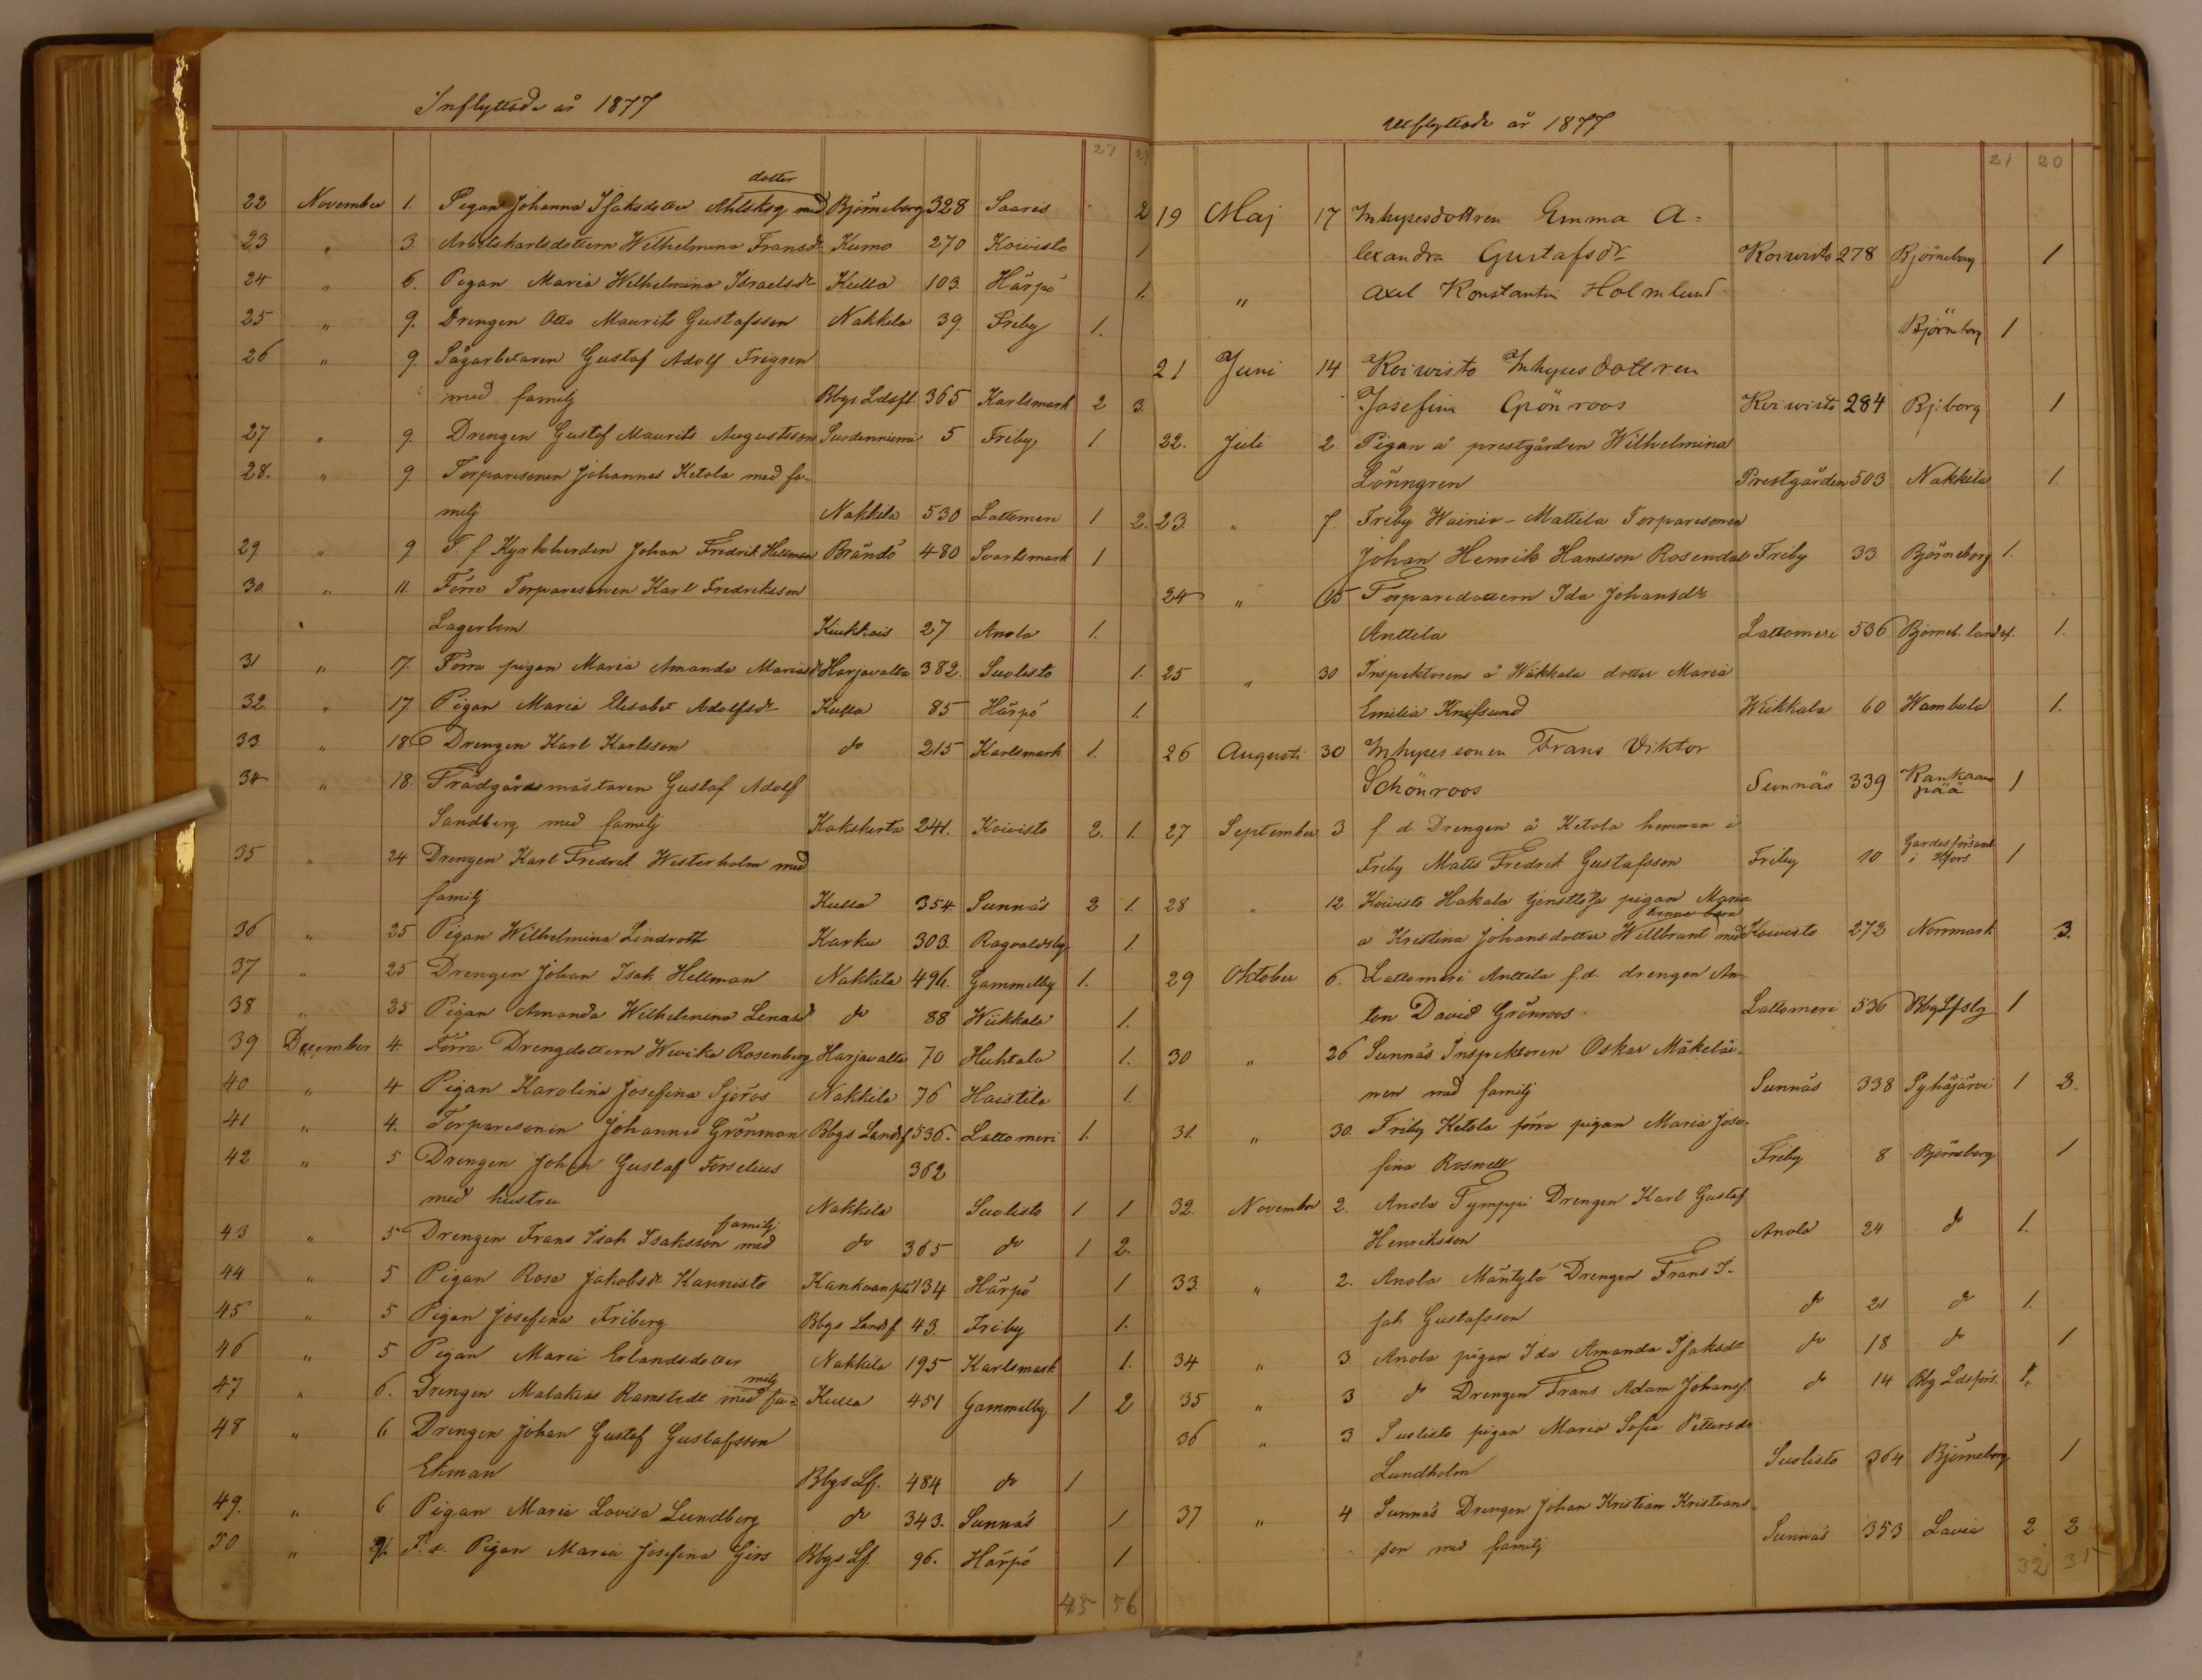 Inflyttade år 1877
27
dotter
22 November 1. Pigan Johanna Isaksdotter med Björneborg 328 Saaris 2
23 " 3. Arbetskarlsdottern Wilhelmina Fransdr Kumo 270 Koivisto 1
24 " 6. Pigan Maria Wilhelmina Israelsdr Kulla 103 Härpö 1.
25 " 9. Drengen Otto Maurits Gustafsson Nakkila 39 Friby 1.
26 " 9. Sågarbetaren Gustaf Adolf Frigren
med familj Bbgs Ldsfl. 365 Karlsmark 2 3.
27 " 9. Drengen Gustaf Maurits Augustsson Suodenniemi 5 Friby 1
28. " 9. Torparesonen Johannes Ketola med fa-
milj Nakkila 530 Lattomeri 1 2.
29 " 9 T. f. Kyrkoherden Johan Fredrik Hellman Brändö 480 Svartsmark 1
30 " 11 Förra Torparesonen Karl Fredriksson
Lagerbom Kuckkais 27 Anola 1.
31 " 17. Förra pigan Maria Amanda Mariasdr Harjavalta 382 Suolisto 1.
32 " 17 Pigan Maria Elisabet Adolfsdr Kulla 85 Härpö 1.
33 " 18 Drengen Karl Karlsson do 215 Karlsmark 1.
34 " 18. Trädgårdsmästaren Gustaf Adolf
Sandberg med familj Kakskerta 241. Koivisto 2. 1.
35 " 24 Drengen Karl Fredrik Westerholm med
familj Kulla 354 Sunnäs 2 1.
36 " 25 Pigan Wilhelmina Lindroth Karku 303. Ragvaldsby 1.
37 " 25 Drengen Johan Isak Hellman Nakkila 496. Gammelby 1.
38 " 25 Pigan Amanda Wilhelmina Lenasd do 88 Wiikkala 1.
39 December 4. Förra Drengdottern Wevika Rosenberg Harjavalta 70 Huhtala 1.
40 " 4 Pigan Karolina Josefina Sjöros Nakkila 76 Haistila 1.
41 " 4. Torparesonen Johannes Grönman Bbgs Landsf 536. Lattomeri 1.
42 " 5 Drengen Johan Gustaf Forselius 362
med hustru Nakkila Suolisto 1 1
familj
43 " 5 Drengen Frans Isak Isaksson med do 365 do 1 2.
44 " 5 Pigan Rosa Jakobsdr Kannisto Kankaanpää 134 Härpö 1
45 " 5 Pigan Josefina Friberg Bbgs Landsf 43. Friby 1.
46 " 5 Pigan Maria Erlandsdotter Nakkila 195 Karlsmark 1.
milj
47 " 6. Drengen Malakias Ramstedt med fa- Kulla 451 Gammelby 1 2
48 " 6 Drengen Johan Gustaf Gustafsson
Ekman Bbgs Lf. 484 do 1
49. " 6 Pigan Maria Lovisa Lundberg do 343. Sunnäs 1
50 " F. d. Pigan Maria Josefina Girs Bbgs Lf. 96. Härpö 1
45 56
Utflyttade år 1877
21 20
19 Maj 17 Inhysesdottren Emma A-
lexandra Gustafsdr Koivisto 278 Björneborg 1
" Axel Konstantin Holmlund
Björneborg 1
21 Juni 14 Koivisto Inhyses dottren
Josefina Grönroos Koivisto 284 Bj:borg 1
22. Juli 2. Pigan å prestgården Wilhelmina
Lönngren Prestgården 503 Nakkila 1.
23. " 7. Friby Wainio-Mattila Torparesonen
Johan Henrik Hansson Rosendal Friby 33 Björneborg 1.
24 " 15 Torparedottern Ida Johansdr
Anttila Lattomeri 536 Björneb. landsf. 1.
25 " 30 Inspektorens å Wiikkala dotter Maria
Emilia Knefsund Wiikkala 60 Wambula 1.
26 Augusti 30 Inhyses sonen Frans Viktor
Schönroos Sunnäs 339 Kankaan
pää 1
27 September 3 f. d. Drengen å Ketola hemman i
Friby Matts Fredrik Gustafsson Friby 10 Gardesförsaml
i Hfors 1
28 " 12. Koivisto Hakala tjenstlösa pigan Mari-
a Kristina Johansdotter Willbrant med Koivisto 272 Norrmark 3.
29 Oktober 6. Lattomeri Anttila f.d. drengen An-
ton David Grönroos Lattomeri 536 Bbg Lfslg 1
30 " 26 Sunnäs Inspektoren Oskar Mäkeläi-
nen med familj Sunnäs 338 Pyhäjärvi 1 3.
31. " 30. Friby Ketola förra pigan Maria Jose-
fina Rosnell Friby 8 Björneborg 1
32. November 2. Anola Tymppi Drengen Karl Gustaf
Henriksson Anola 24 do 1.
33. " 2. Anola Mäntylä Drengen Frans I-
sak Gustafsson do 21 do 1.
34 " 3. Anola pigan Ida Amanda Isaksdr do 18 do 1
35 " 3 do Drengen Frans Adam Johanss. do 14 Bbg Ldsförs. 1.
36 " 3 Suolisto pigan Maria Sofia Pettersdr
Lundholm Suolisto 364 Björneborg 1
37 " 4 Sunnäs Drengen Johan Kristian Kristians-
son med familj Sunnäs 353 Lavia 2 2
32 31